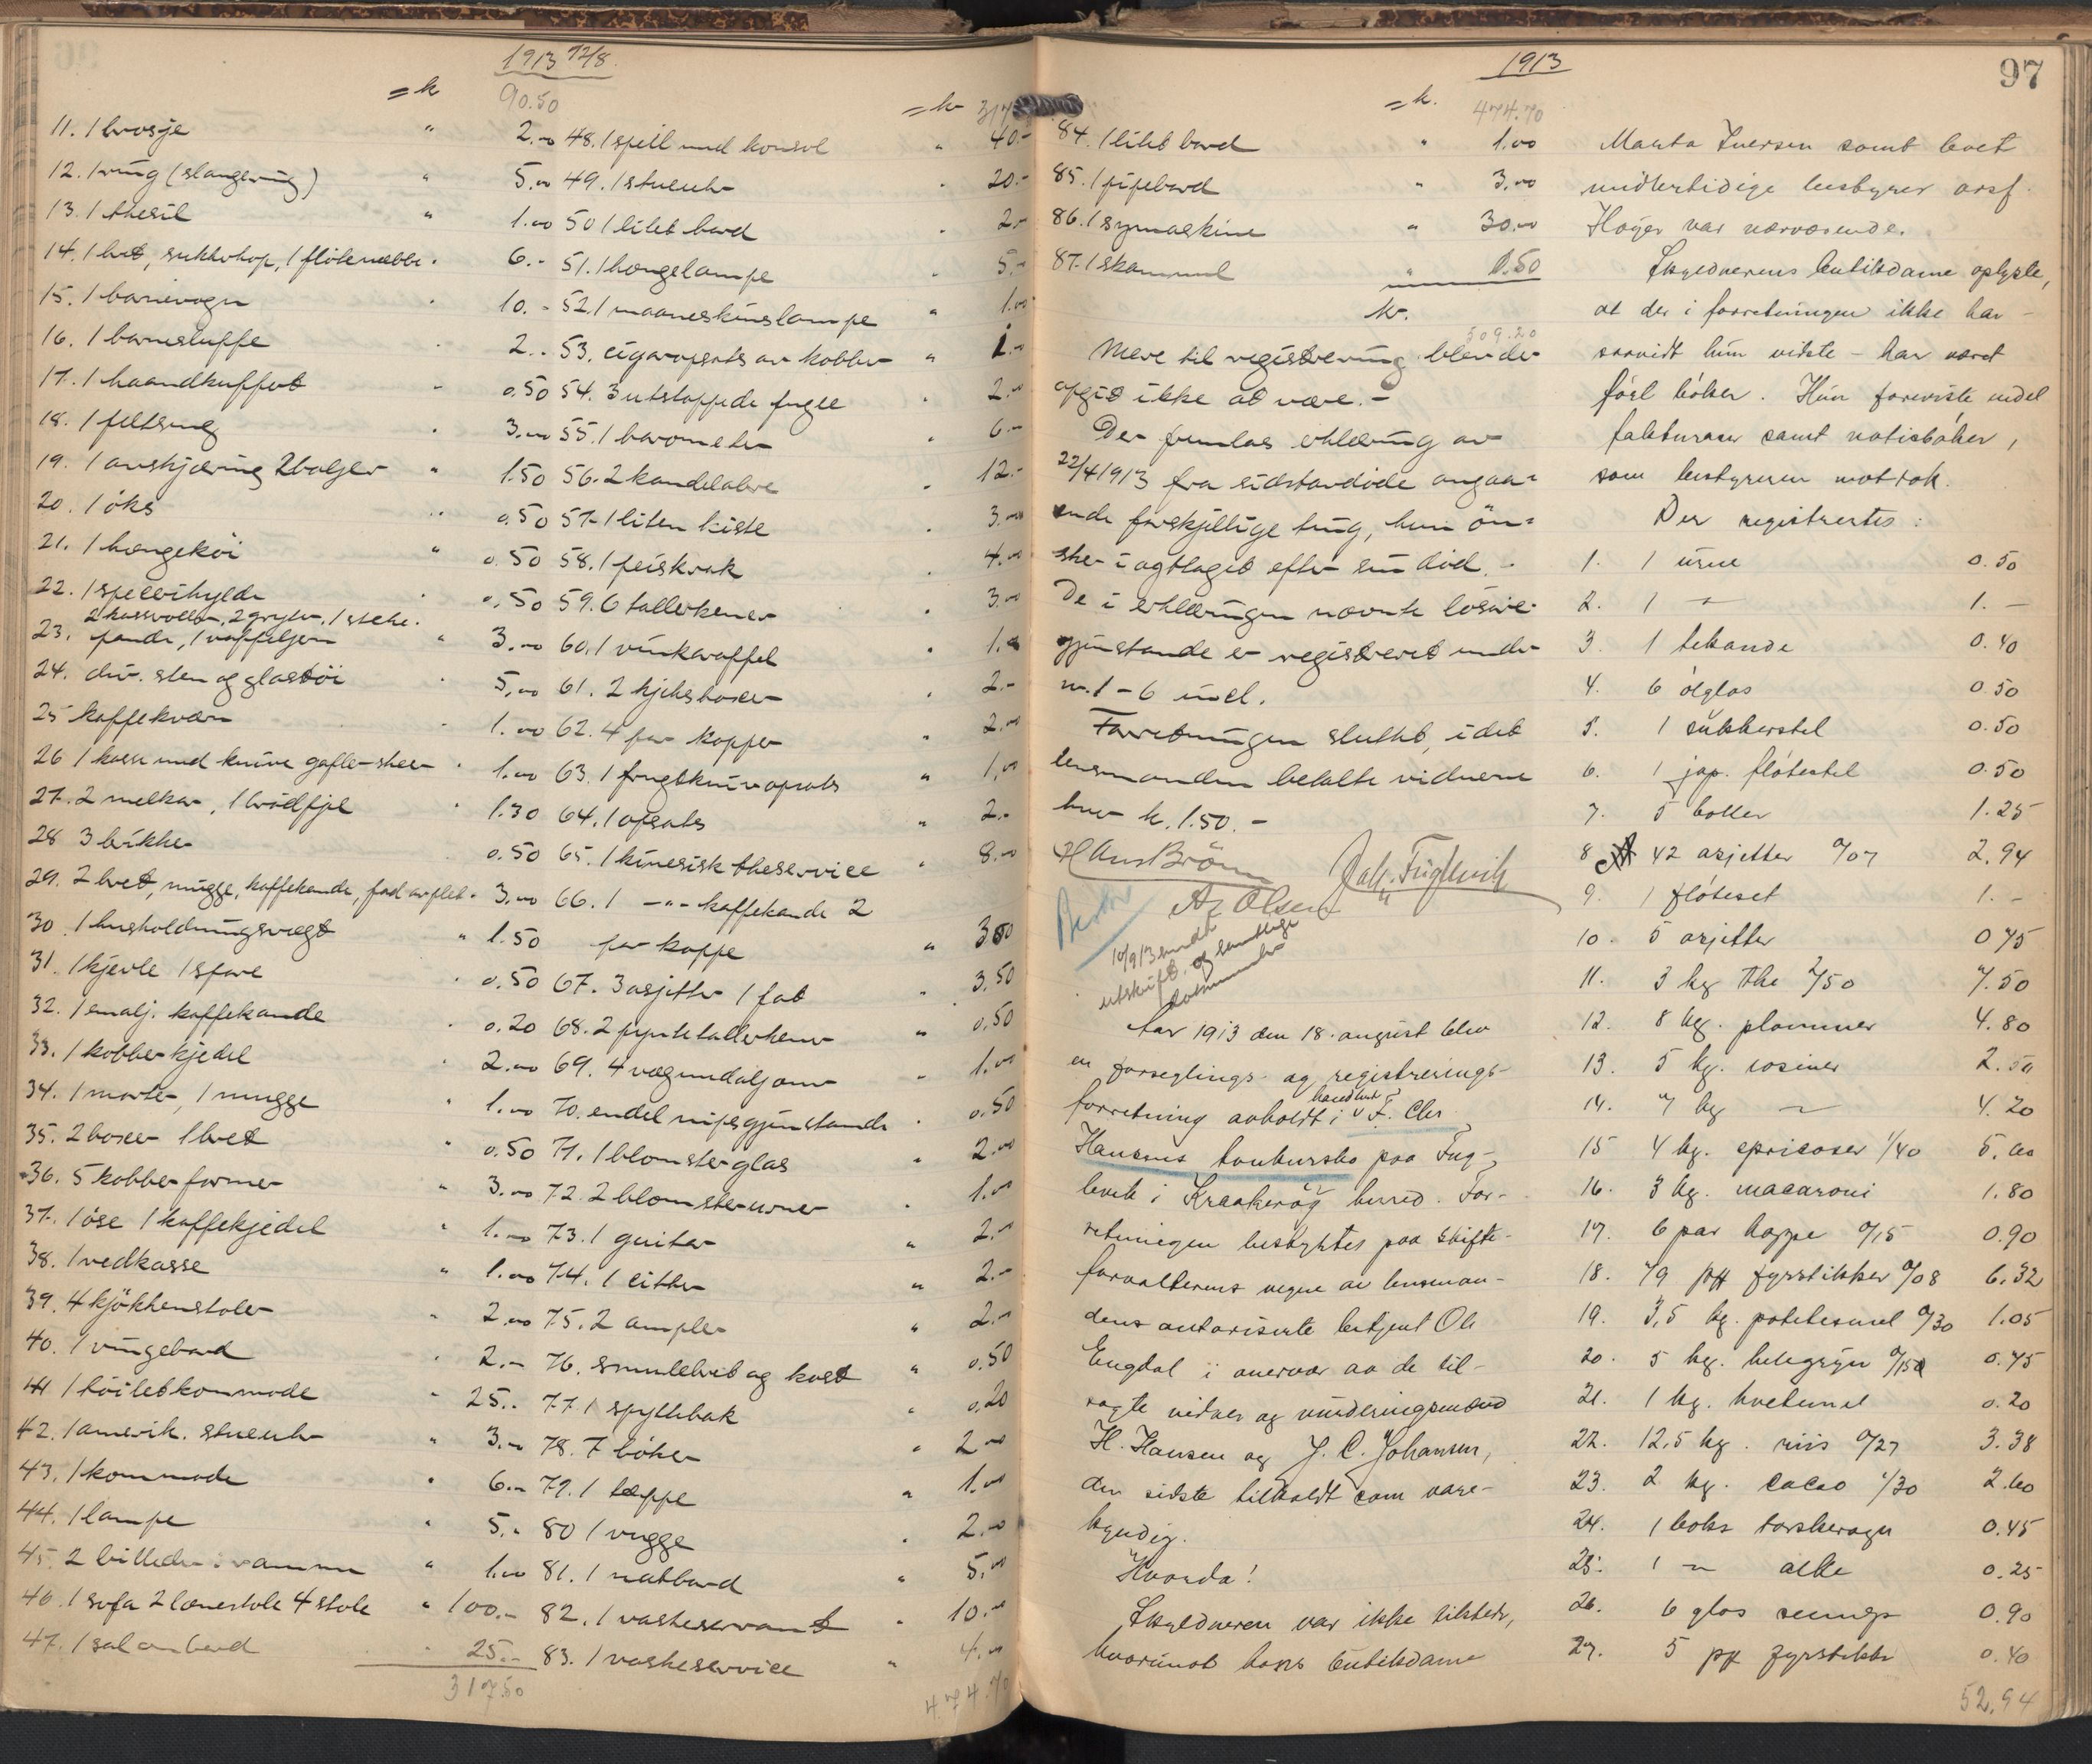 1913 12/8
= kr 90.50
11. 1 brosje " 2.00
12. 1 ring (slangering) " 5.00
13. 1 thesil " 1.00
14. 1 bret, sukkerkop, 1 flötenebbe " 6.-
15. 1 barnevogn " 10.-
16. 1 barnesluffe " 2.-
17. 1 haandkuffert " 0.50
18. 1 filtsmug " 3.00
19. 1 avskjæring 2 balger " 1.50
20. 1 öks " 0.50
21. 1 hengeköi " 0.50
22. 1 speilhylde " 0.50
2 kasseroller, 2 gryter, 1 steke-
23. pande, 1 vaffeljern " 3.00
24. div. sten og glastöi " 5.00
25 kaffekvern 1.00
26 1 kasse med knive gafler skeer " 1.00
27. 2 melkar, 1 brödfjel " 1.30
28 3 brikker 0.50
29. 2 bret, mugge, kaffekande, fad av plet " 3.00
30. 1 husholdningsvegt " 1.50
31. 1 kjevle 1 stave " 0.50
32. 1 emalj. kaffekande " 0.20
33. 1 kobberkjedel " 2.00
34. 1 morter, 1 mugge " 1.00
35. 2 boxer 1 bret " 0.50
36. 5 kobberformer " 3.00
37. 1 öse 1 kaffekjedel " 1.00
38. 1 vedkasse " 1.00
39. 4 kjökkenstoler " 2.00
40. 1 vingebord " 2.-
41 1 toiletkommode " 25.-
42. 1 amerik. stueuhr " 3.-
43. 1 kommode " 6.-
44. 1 lampe " 5.-
45. 2 billeder i ramme " 1.00
46. 1 sofa 2 lænestole 4 stole " 100.-
47. 1 salonbord " 25.-
317.50
= kr 317
48. 1 speil med konsol " 40.-
49. 1 stueuhr " 20.-
50 1 litet bord " 2.-
51. 1 hengelampe " 5.-
52. 1 maaneskinslampe " 1.00
53. cigaropsats av kobber " 1.-
54. 3 utstoppede fugle " 2.-
55. 1 barometer " 6.-
56. 2 kandelabre " 12.-
57. 1 liten kiste " 3.00
58. 1 peiskrak " 4.00
59. 6 tallerkener " 3.00
60. 1 vinkaraffel " 1.00
61. 2 kjeksboxer " 2.-
62. 4 par kopper " 2.00
63. 1 frugtknivopsats " 1.00
64. 1 opsats " 2.-
65. 1 kinesisk theservice " 8.00
66. 1 -"- kaffekande 2
par koppe " 3.00
67. 3 asjetter 1 fat " 3.50
68. 2 pyntetallerkener " 0.50
69. 4 vægmedaljonr " 1.00
70. endel nipsgjenstande " 0.50
71. 1 blomsterglas " 2.00
72. 2 blomsterurner " 1.00
73. 1 guitar " 2.-
74. 1 cither " 2.-
75. 2 ampler " 2.-
76. smulebret og kost " 0.50
77. 1 spyttebak " 0.20
78. 7 böker " 2.00
79. 1 teppe " 1.00
80 1 vugge " 2.00
81. 1 natbord " 5.00
82. 1 vaskeservant " 10.-
83. 1 vaskeservice " 4.00
474.70
1913
97
= kr. 474.70
84. 1 litet bord " 1.00
85. 1 pipebord " 3.00
86. 1 symaskine " 30.00
87. 1 skammel " 0.50
kr. 509.20
Mere til registrering blev der
opgit ikke at være. -
Der fremlas erklæring av
22/4 1913 fra sidstavdöde angaa-
ende forskjellige ting, hun ön-
sker iagttaget efter sin död. -
De i erklæringen nævnte lösöre-
gjenstande er registreret under
nr. 1 - 6 incl.
Forretningen sluttet, idet
lensmanden betalte vidnerne
hver kr. 1.50. -
Hans Bröm Joh. Fuglevik
A. Olsen
10/9 13 sendt
utskrift og samtlige
dokumenter
Aar 1913 den 18. august blev
en forseglings- og registrerings-
forretning avholdt i handlende F. Chr
Hansens konkursbo paa Fug-
levik i Kraakeröy herred. For-
retningen bestyrtes paa skifte-
forvalterens vegne av lensman-
dens autoriserte betjent Ole
Engdal i overvær av de til-
sagte vidner og vurderingsmænd
H. Hansen og J. C. Johansen,
den sidste tilkaldt som vare-
kyndig.
Hvorda!
Skyldneren var ikke tilstede,
hvorimot hans butikdame
Marta Iversen samt boet
midlertidige bestyrer orsf.
Höyer var nærværende.
Skyldnerens butikdame oplyste,
at der i forretningen ikke har -
saavidt hun vidste - har været
fört böker. Hun foreviste endel
fakturaer samt notisböker,
som bestyreren mottok.
Der registrertes:
1. 1 urne 0.50
2. 1 - " - 1.-
3 1 tekande 0.40
4. 6 ölglas 0.50
5. 1 sukkerstel 0.50
6. 1 jap. flötestel 0.50
7. 5 boller 1.25
8 42 asjetter 0/07 2.94
9. 1 flöteset 1.-
10. 5 asjetter 0.75
11. 3 kg the 2/50 7.50
12. 8 kg. plommer 4.80
13. 5 kg. rosiner 2.50
14. 7 kg " 4.20
15 4 kg. apricoser 1/40 5.60
16. 3 kg. macaroni 1.80
17. 6 par koppe 0/15 0.90
18. 79 pk fyrstikker 0/08 6.32
19. 3,5 kg. potetesmel 0/30 1.05
20. 5 kg. helegryn 0/15 0.75
21. 1 kg. hvetemel 0.20
22. 12.5 kg. riis 0/27 3.38
23. 2 kg. cacao 1/30 2.60
24. 1 boks torskerogn 0.45
25. 1 " alke 0.25
26. 6 glas sennep 0.90
27. 5 pk fyrstikke 0.40
52,94